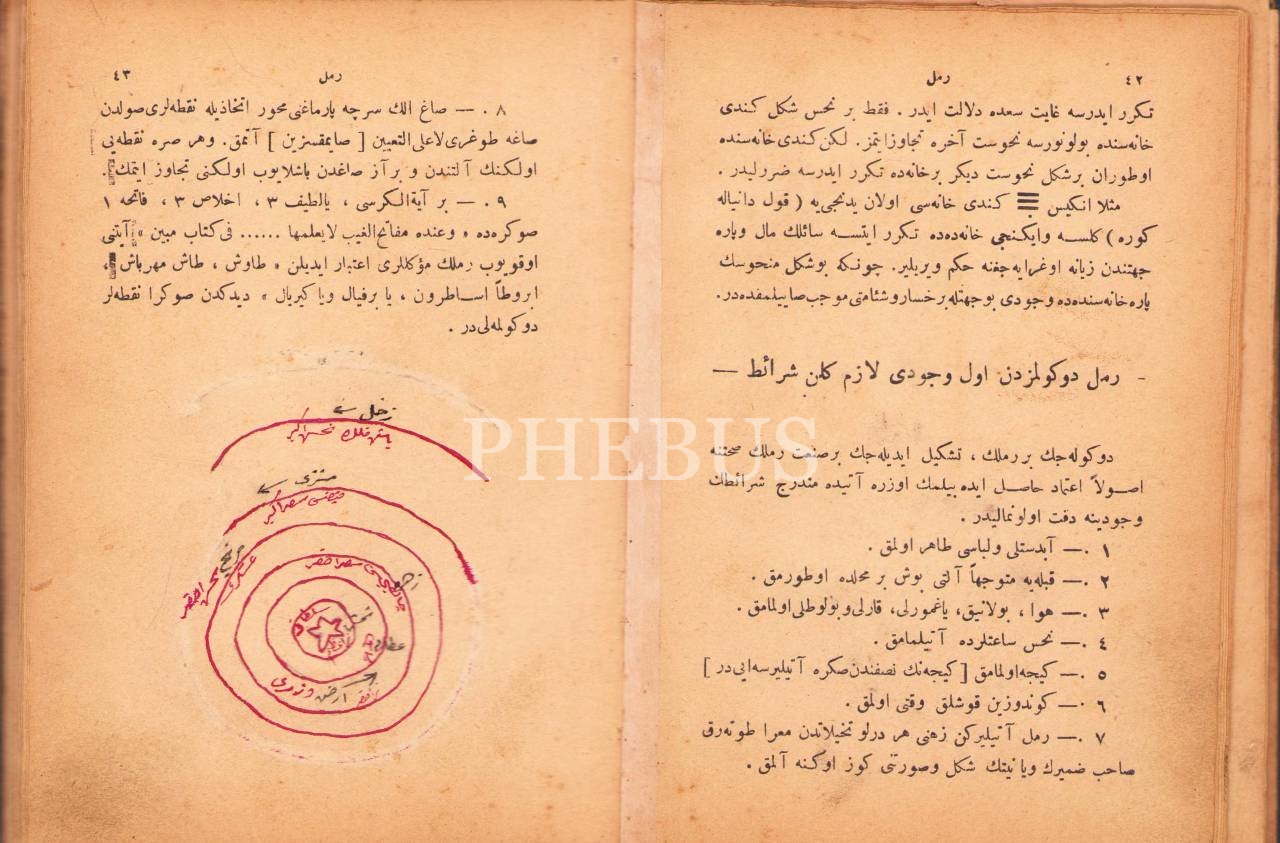 ٤٢
رمل
تكرر ايدرسه غايت سعده دلالت ايدر . فقط بر نحس شكل كندى
خانه‌سنده بولونورسه نحوست آخره تجاوز ايتمز. لكن كندى خانه‌سنده
اوطوران برشكل نحوست ديكر برخانه‌ده تكرر ايدرسه ضررليدر .
مثلا انكيس كندى خانه‌سى اولان يدنجى‌يه ( قول دانياله
كوره ) كلسه وايكنجى خانه‌ده‌ده تكرر ايتسه سائلك مال وپاره
جهتندن زيانه اوغرايه‌جغنه حكم ويريلير. چونكه بوشكل منحوسك
پاره خانه‌سنده‌ده وجودى بوجهتله برخسار وشئامتى موجب صاييلمقده‌در.
- رمل دوكولمزدن اول وجودى لازم كلن شرائط —
دوكوله‌جك بر رملك ، تشكيل ايديله‌جك برصنعت رملك صحتنه
اصولاً اعتماد حاصل ايده بيلمك اوزره آتيده مندرج شرائطك
وجودينه دقت اولونماليدر .
١ .— آبدستلى ولباسى طاهر اولمق .
٢ .— قبله‌يه متوجهاً آلتى بوش بر محلده اوطورمق .
٣ .— هوا ، بولانيق، ياغمورلى، قارلى وبولوطلى اولمامق .
٤ .— نحس ساعتلرده آتيلمامق .
٥ .— كيجه اولمامق [ كيجه‌نك نصفندن صكره آتيليرسه ايى در ]
٦ .— كوندوزين قوشلق وقتى اولمق .
٧ .— رمل آتيليركن ذهنى هر درلو تخيلاتدن معرا طوته‌رق
صاحب ضميرك ويا نيتك شكل وصورتنى كوز اوكنه آلمق .
٤٣
رمل
٨ .— صاغ الك سرچه پارماغنى محور اتخاذيله نقطه‌لرى صولدن
صاغه طوغرى لاعلى‌التعيين [ صايمقسزين ] آتمق. وهر صره نقطه‌يى
اولكنك آلتندن و بر آز صاغدن باشلايوب اولكنى تجاوز ايتمك .
٩ .— بر آية‌الكرسى ، يالطيف ٣ ، اخلاص ٣ ، فاتحه ١
صوكره‌ده « وعنده مفاتح‌الغيب لايعلمها ...... فى كتاب مبين » آيتنى
اوقويوب رملك مؤكللرى اعتبار ايديلن « طاوش ، طاش مهرباش ،
ابروطاً اساطرون ، يا برفيال ويا كيريال » ديدكدن صوكرا نقطه‌لر
دوكولمه‌لى‌در .
زحل
نحس اكبر
مشترى
سعد اكبر
مريخ
نحس اصغر
سعد اصغر
عطارد
ارض